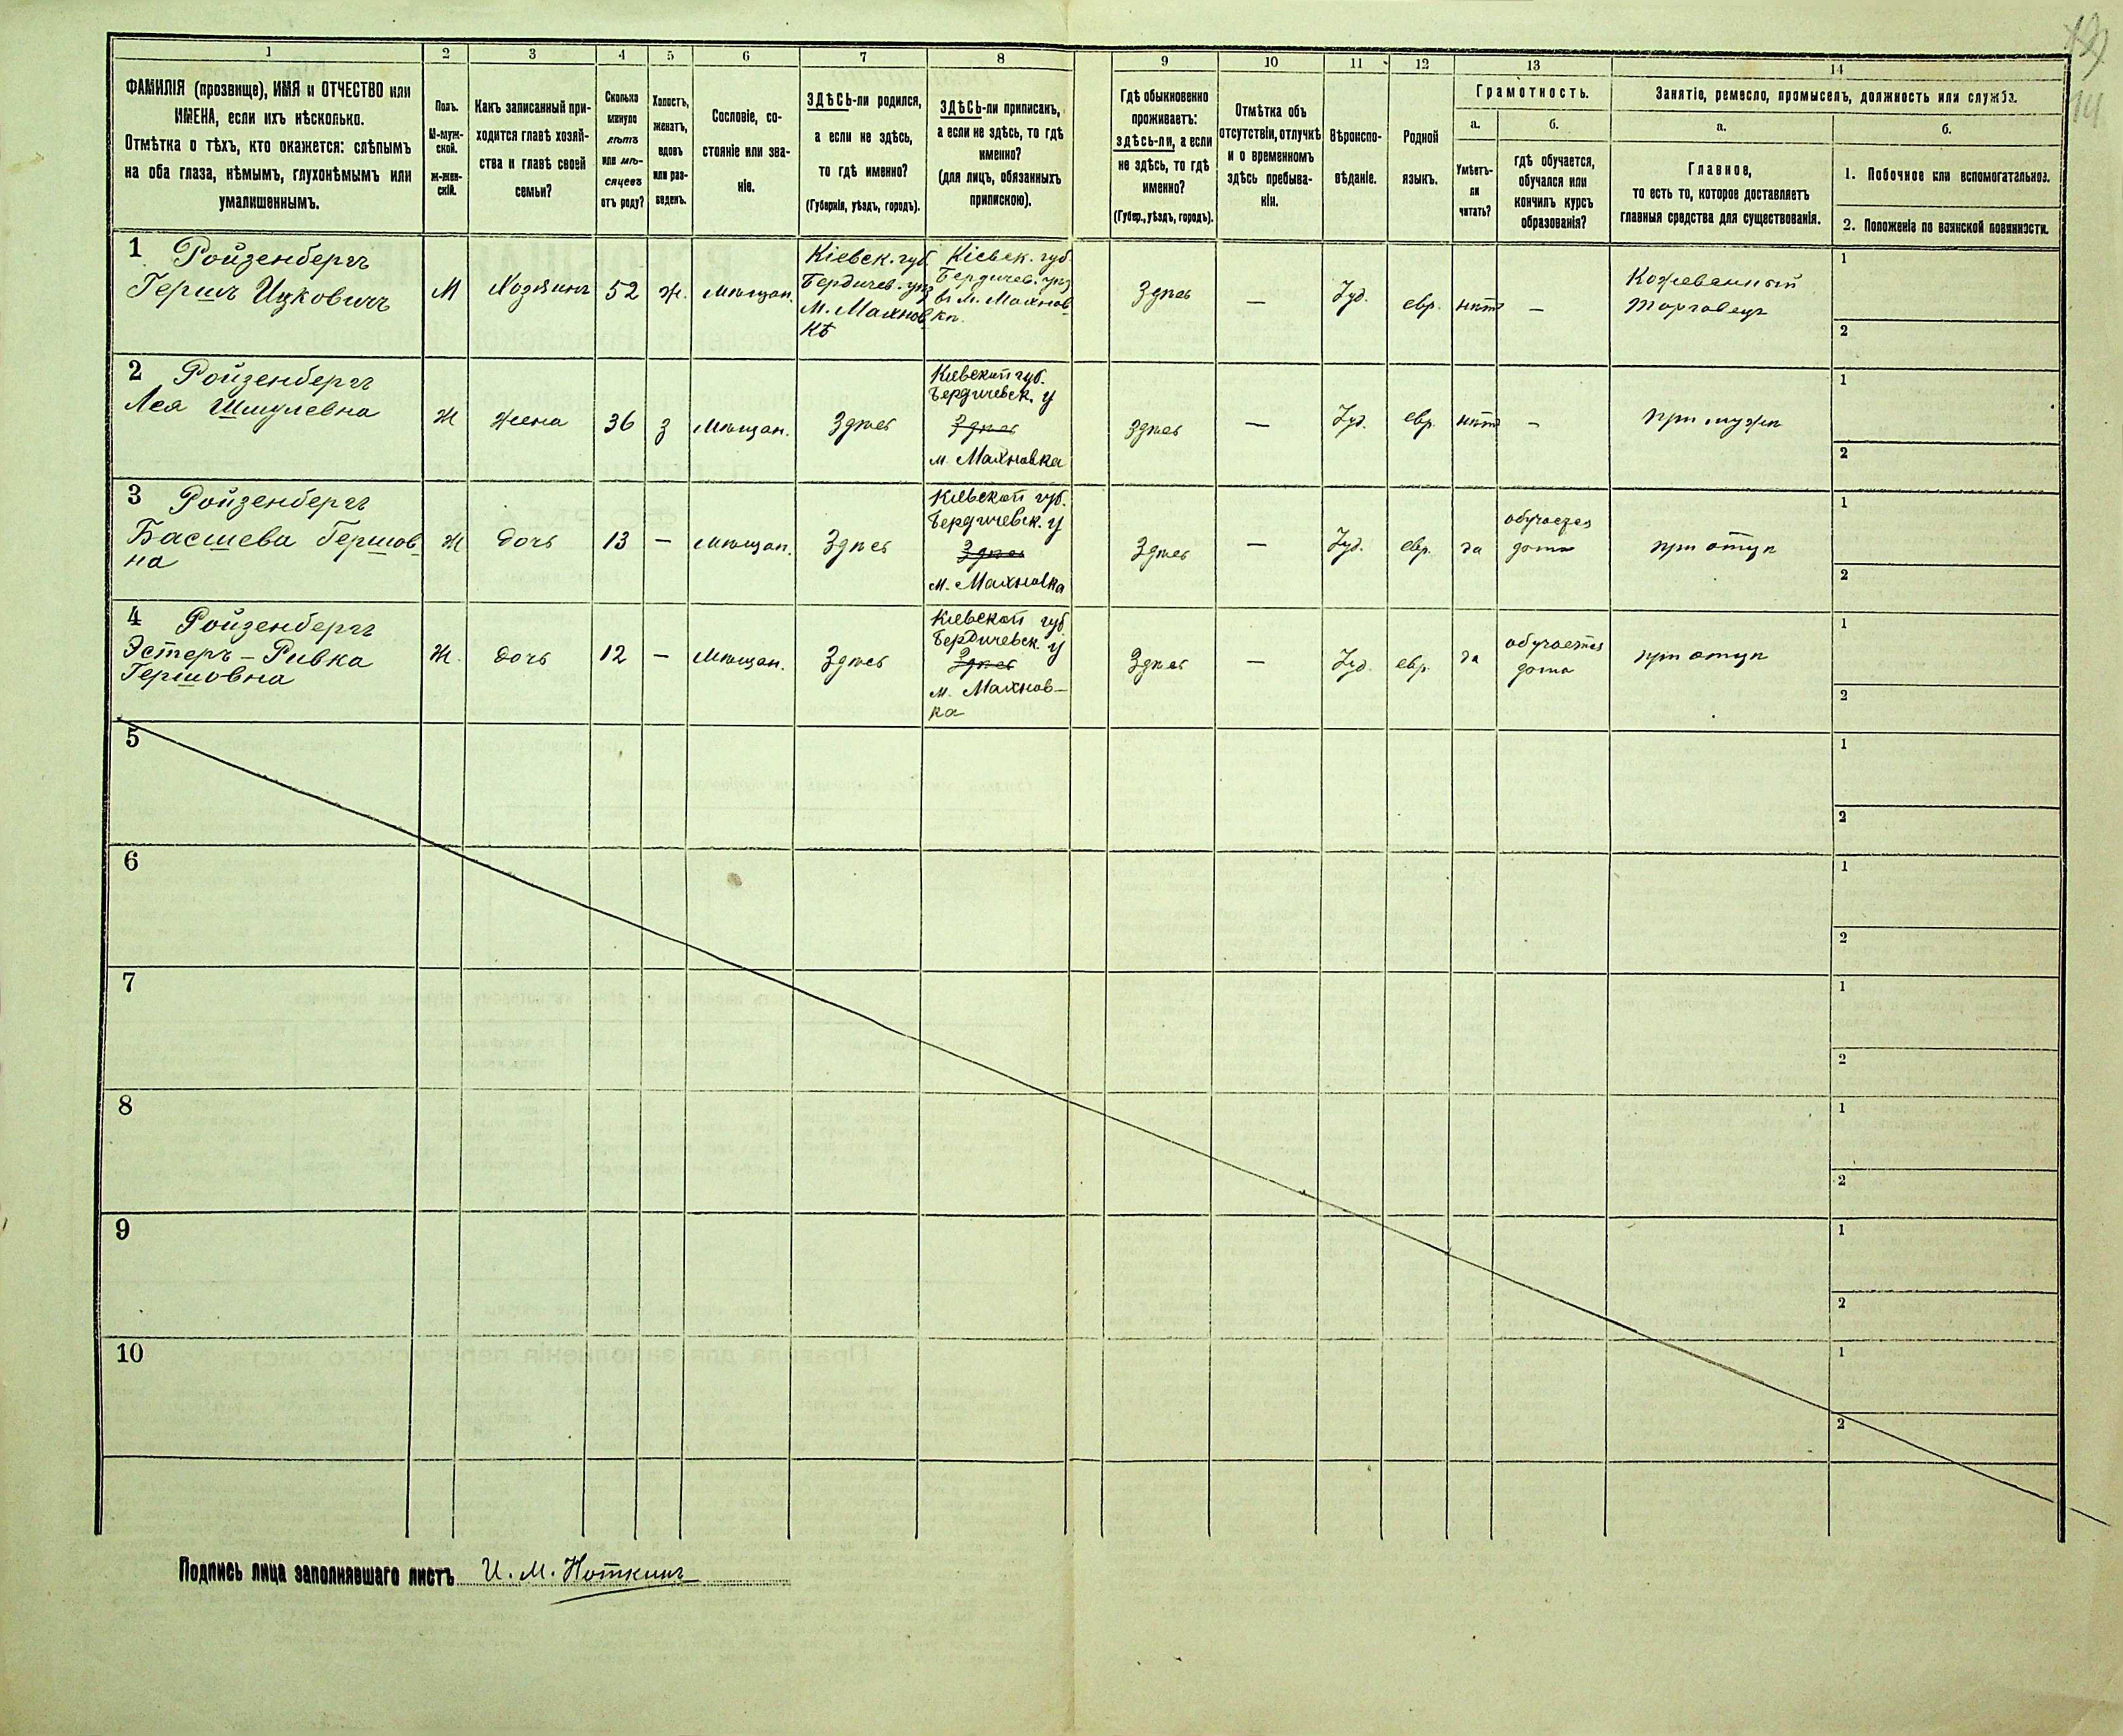 1
2
3
4
5
6
7
8
9
10
11
12
13
14
ФАМИЛІЯ (прозвище), ИМЯ и ОТЧЕСТВО или
ИМЕНА, если ихъ нѣсколько.
Отмѣтка о тѣхъ, кто окажется: слѣпымъ
на оба глаза, нѣмымъ, глухонѣмымъ или
умалишеннымъ.
Полъ.
М-муж-
ской.
ж-жен-
скій.
Какъ записанный при-
ходится главѣ хозяй-
ства и главѣ своей
семьи?
Сколько
минуло
лѣтъ
или мѣ-
сяцевъ
отъ роду?
Холостъ,
женатъ,
вдовъ
или раз-
веденъ.
Сословіе, со-
стояніе или зва-
ніе.
ЗДѢСЬ-ли родился,
а если не здѣсь,
то гдѣ именно?
(Губернія, уѣздъ, городъ).
ЗДѢСЬ-ли приписанъ,
а если не здѣсь, то гдѣ
именно?
(для лицъ, обязанныхъ
припискою).
Гдѣ обыкновенно
проживаетъ:
ЗДѢСЬ-ли, а если
не здѣсь, то гдѣ
именно?
(Губер., уѣздъ, городъ).
Отмѣтка объ
отсутствіи, отлучкѣ
и о временномъ
здѣсь пребыва-
ніи.
Вѣроиспо-
вѣданіе.
Родной
языкъ.
Грамотность.
а.
б.
Умѣетъ-
ли
читать?
гдѣ обучается,
обучался или
кончилъ курсъ
образованія?
Занятіе, ремесло, промыселъ, должность или служба.
а.
б.
Главное,
то есть то, которое доставляетъ
главныя средства для существованія.
1. Побочное или вспомогательное.
2. Положеніе по воинской повинности.
1 Ройзенбергъ
Гершъ Ицковичъ
М
Хозяинъ
52
ж.
мѣщан.
Кіевск. губ.
Бердичев. уѣз
м. Махнов
кѣ
Кіевск. губ
Бердичев. уѣз
въ м. Махнов-
кѣ.
Здѣсь
—
Іуд.
евр.
нѣтъ
—
Кожевенный
торговецъ
1
2
2 Ройзенбергъ
Лея Шмулевна
Ж
жена
36
з
мѣщан.
Здѣсь
Кіевской губ.
Бердичевск. у
Здѣсь
м. Махновка
Здѣсь
—
Іуд.
евр.
нѣтъ
—
при мужѣ
1
2
3 Ройзенбергъ
Басшева Гершов-
на
Ж
дочь
13
—
мѣщан.
Здѣсь
Кіевской губ.
Бердичевск. у
Здѣсь
м. Махновка
Здѣсь
—
Іуд.
евр.
да
обучается
дома
при отцѣ
1
2
4 Ройзенбергъ
Эстеръ-Ривка
Гершовна
Ж.
дочь
12
—
мѣщан.
Здѣсь
Кіевской губ
Бердичевск. у
Здѣсь
м. Махнов-
ка
Здѣсь
—
Іуд.
евр.
да
обучается
дома
при отцѣ
1
2
5
1
2
6
1
2
7
1
2
8
1
2
9
1
2
10
1
2
Подпись лица заполнявшаго листъ И. М. Ноткинъ